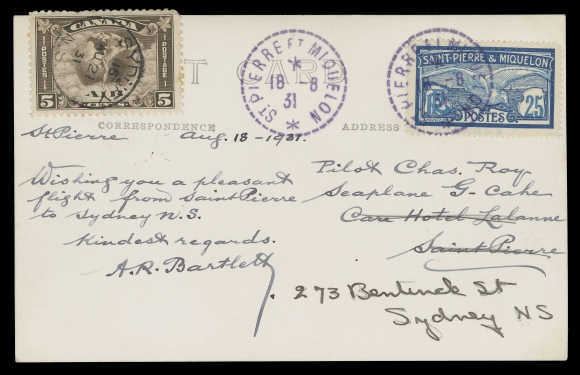 CANADA
POSTES POSTAGE
AIR
5 CENTS 5
SYDNEY
ST PIERRE ET MIQUELON
18 -8
31
ST PIERRE ET MIQUELON
SAINT-PIERRE & MIQUELON
25
POSTES
CARD
CORRESPONDENCE
ADDRESS
St Pierre Aug. 18-1931.
Wishing you a pleasant
flight from Saint Pierre
to Sydney N.S.
Kindest regards.
A.R. Bartlett
Pilot Chas. Roy
Seaplane G-Cahe
Care Hotel Lalanne
Saint Pierre
273 Bentinck St
Sydney NS